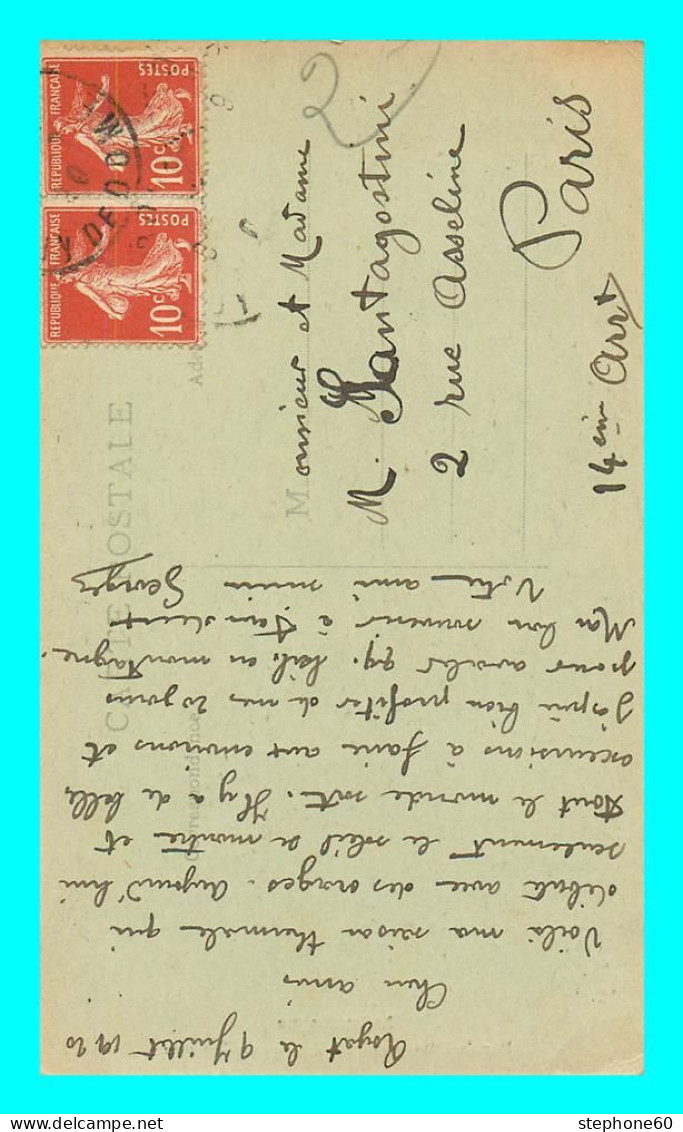 CARTE POSTALE
Correspondance
Royat le 9 Juillet 1920
Chers amis
Voilà ma saison thermale qui
débute avec des orages. Aujourd'hui
seulement le soleil se montre et
tout le monde sort. Il y a de belles
excursions à faire aux environs et
j'espère bien profiter de mes 20 jours
pour avaler qq. kil. en montagne.
Mon bon souvenir à tous deux
Votre ami
Georges
Monsieur et Madame
M. Santagostini
2 rue Asseline
Paris
14 eme Arrt
2
REPUBLIQUE FRANÇAISE
POSTES
10c
REPUBLIQUE FRANÇAISE
POSTES
10c
Y DE DOM
stephone60